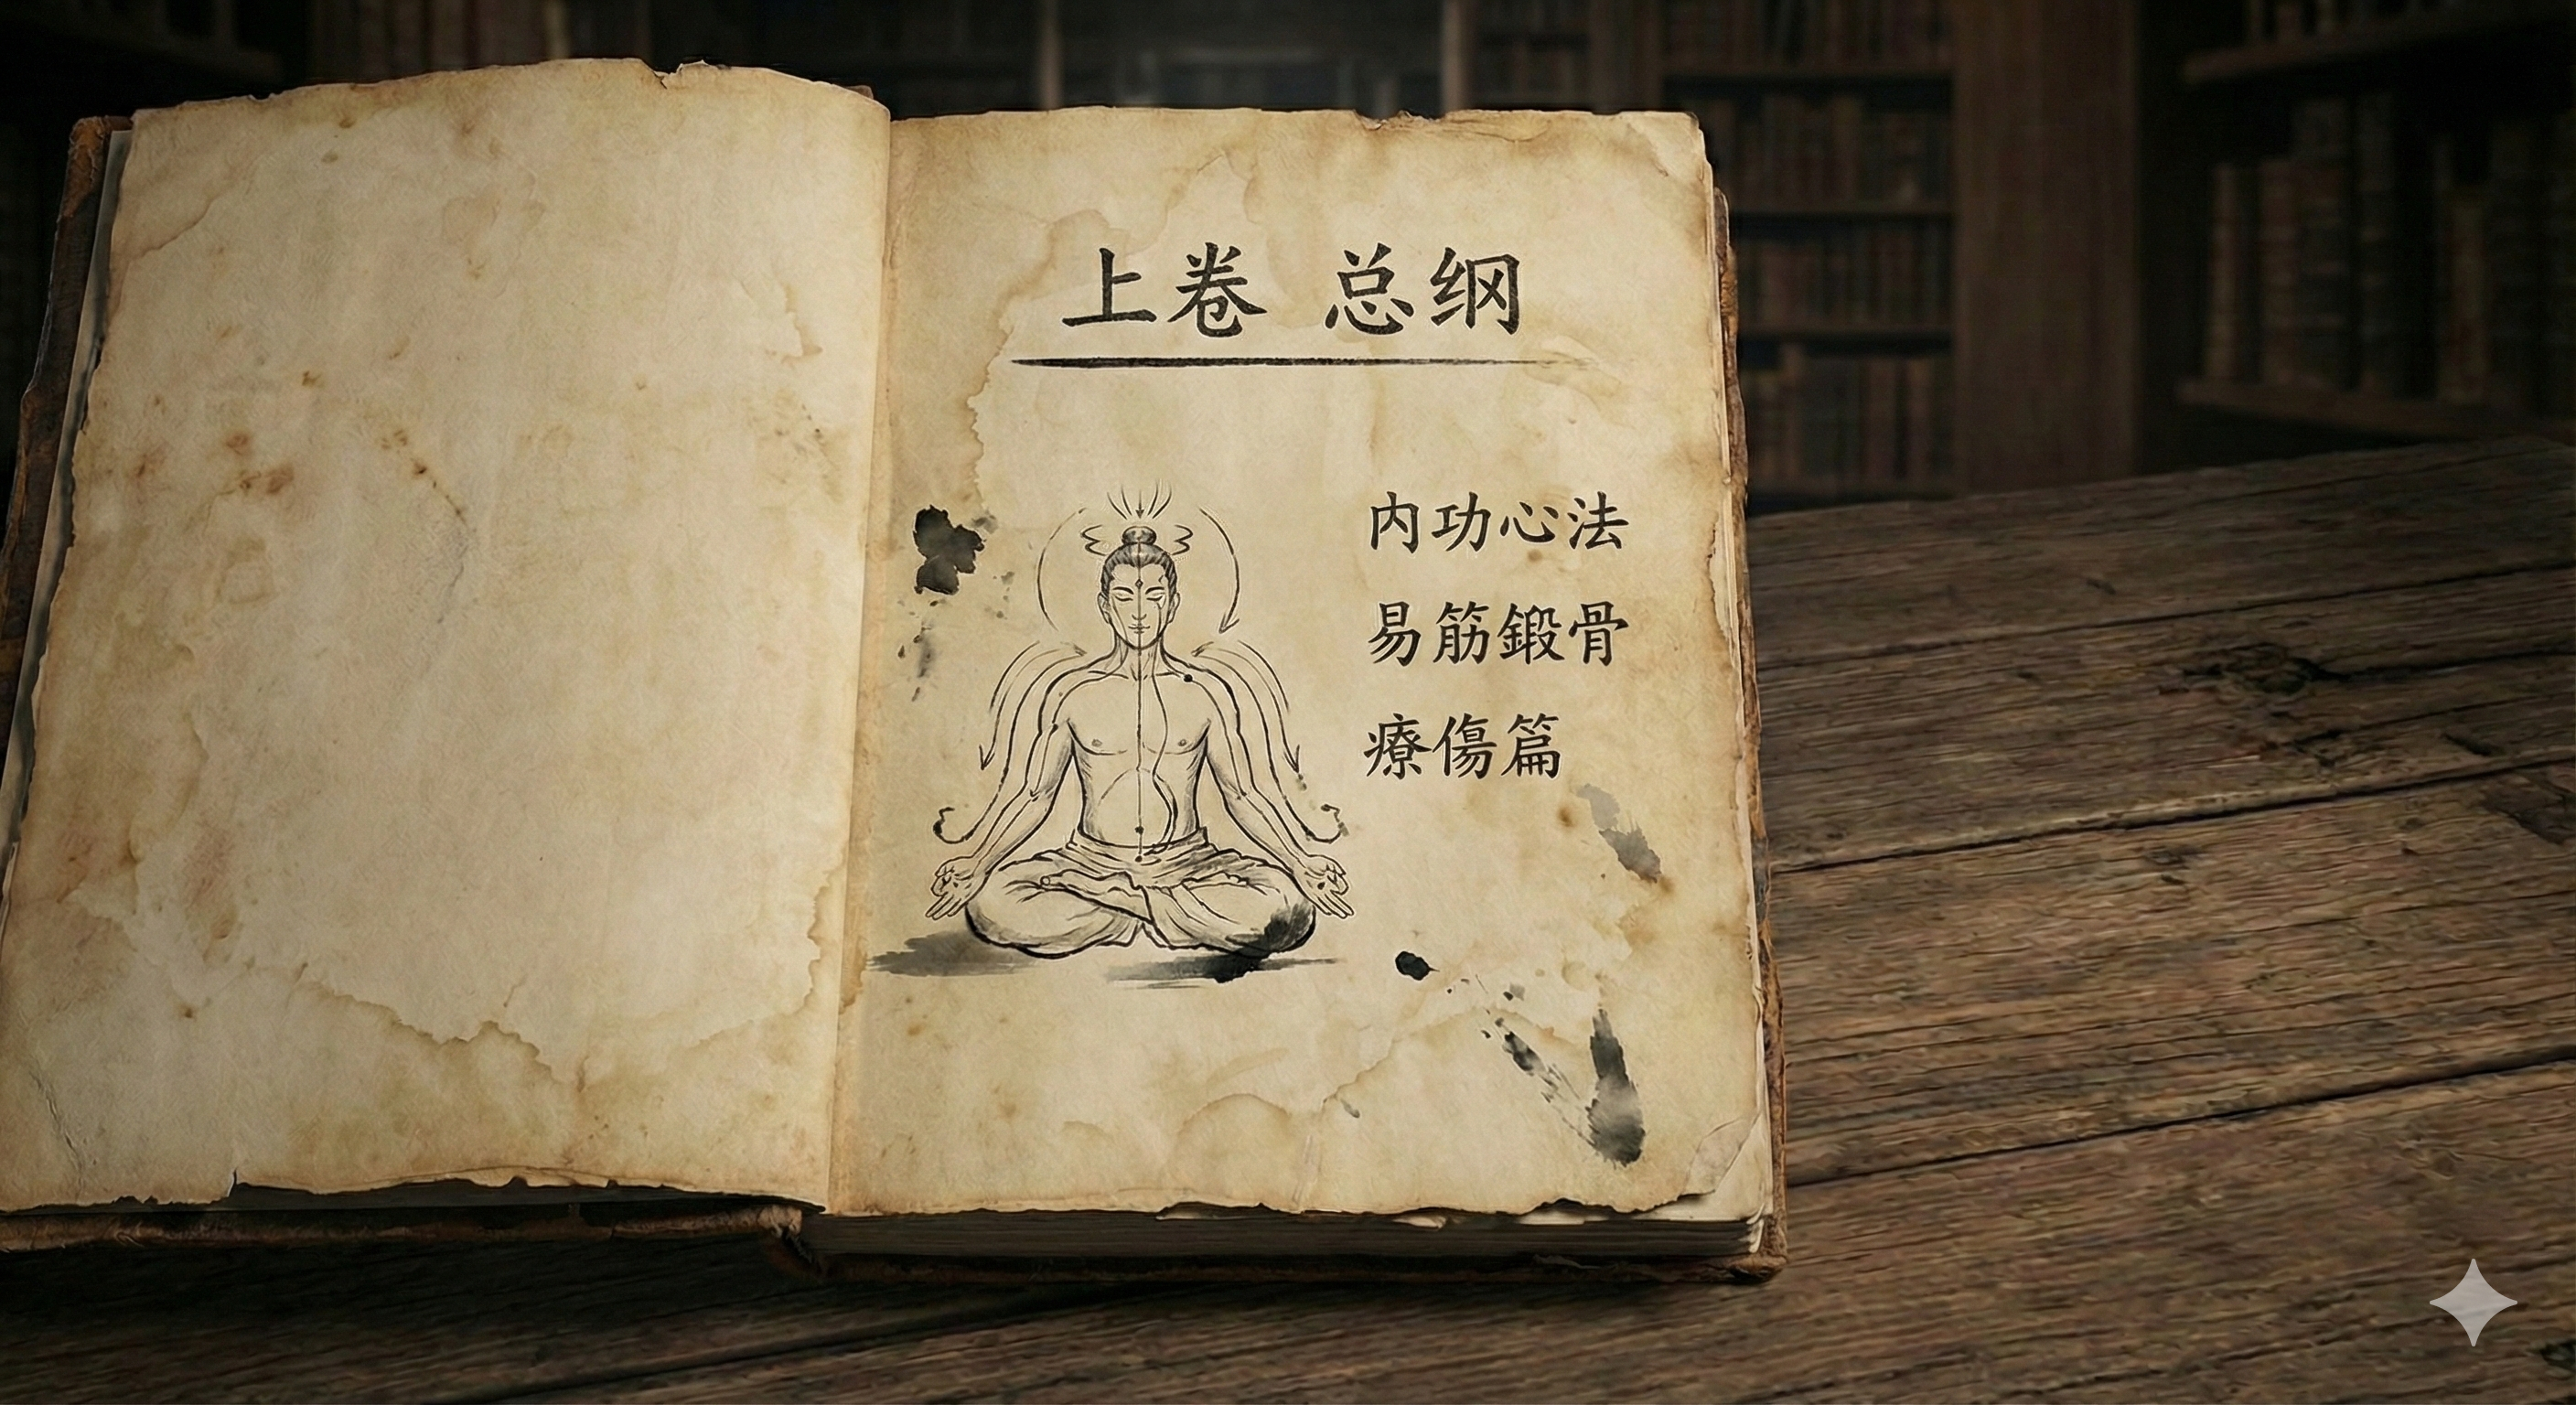 上卷 总纲
内功心法
易筋鍛骨
療傷篇